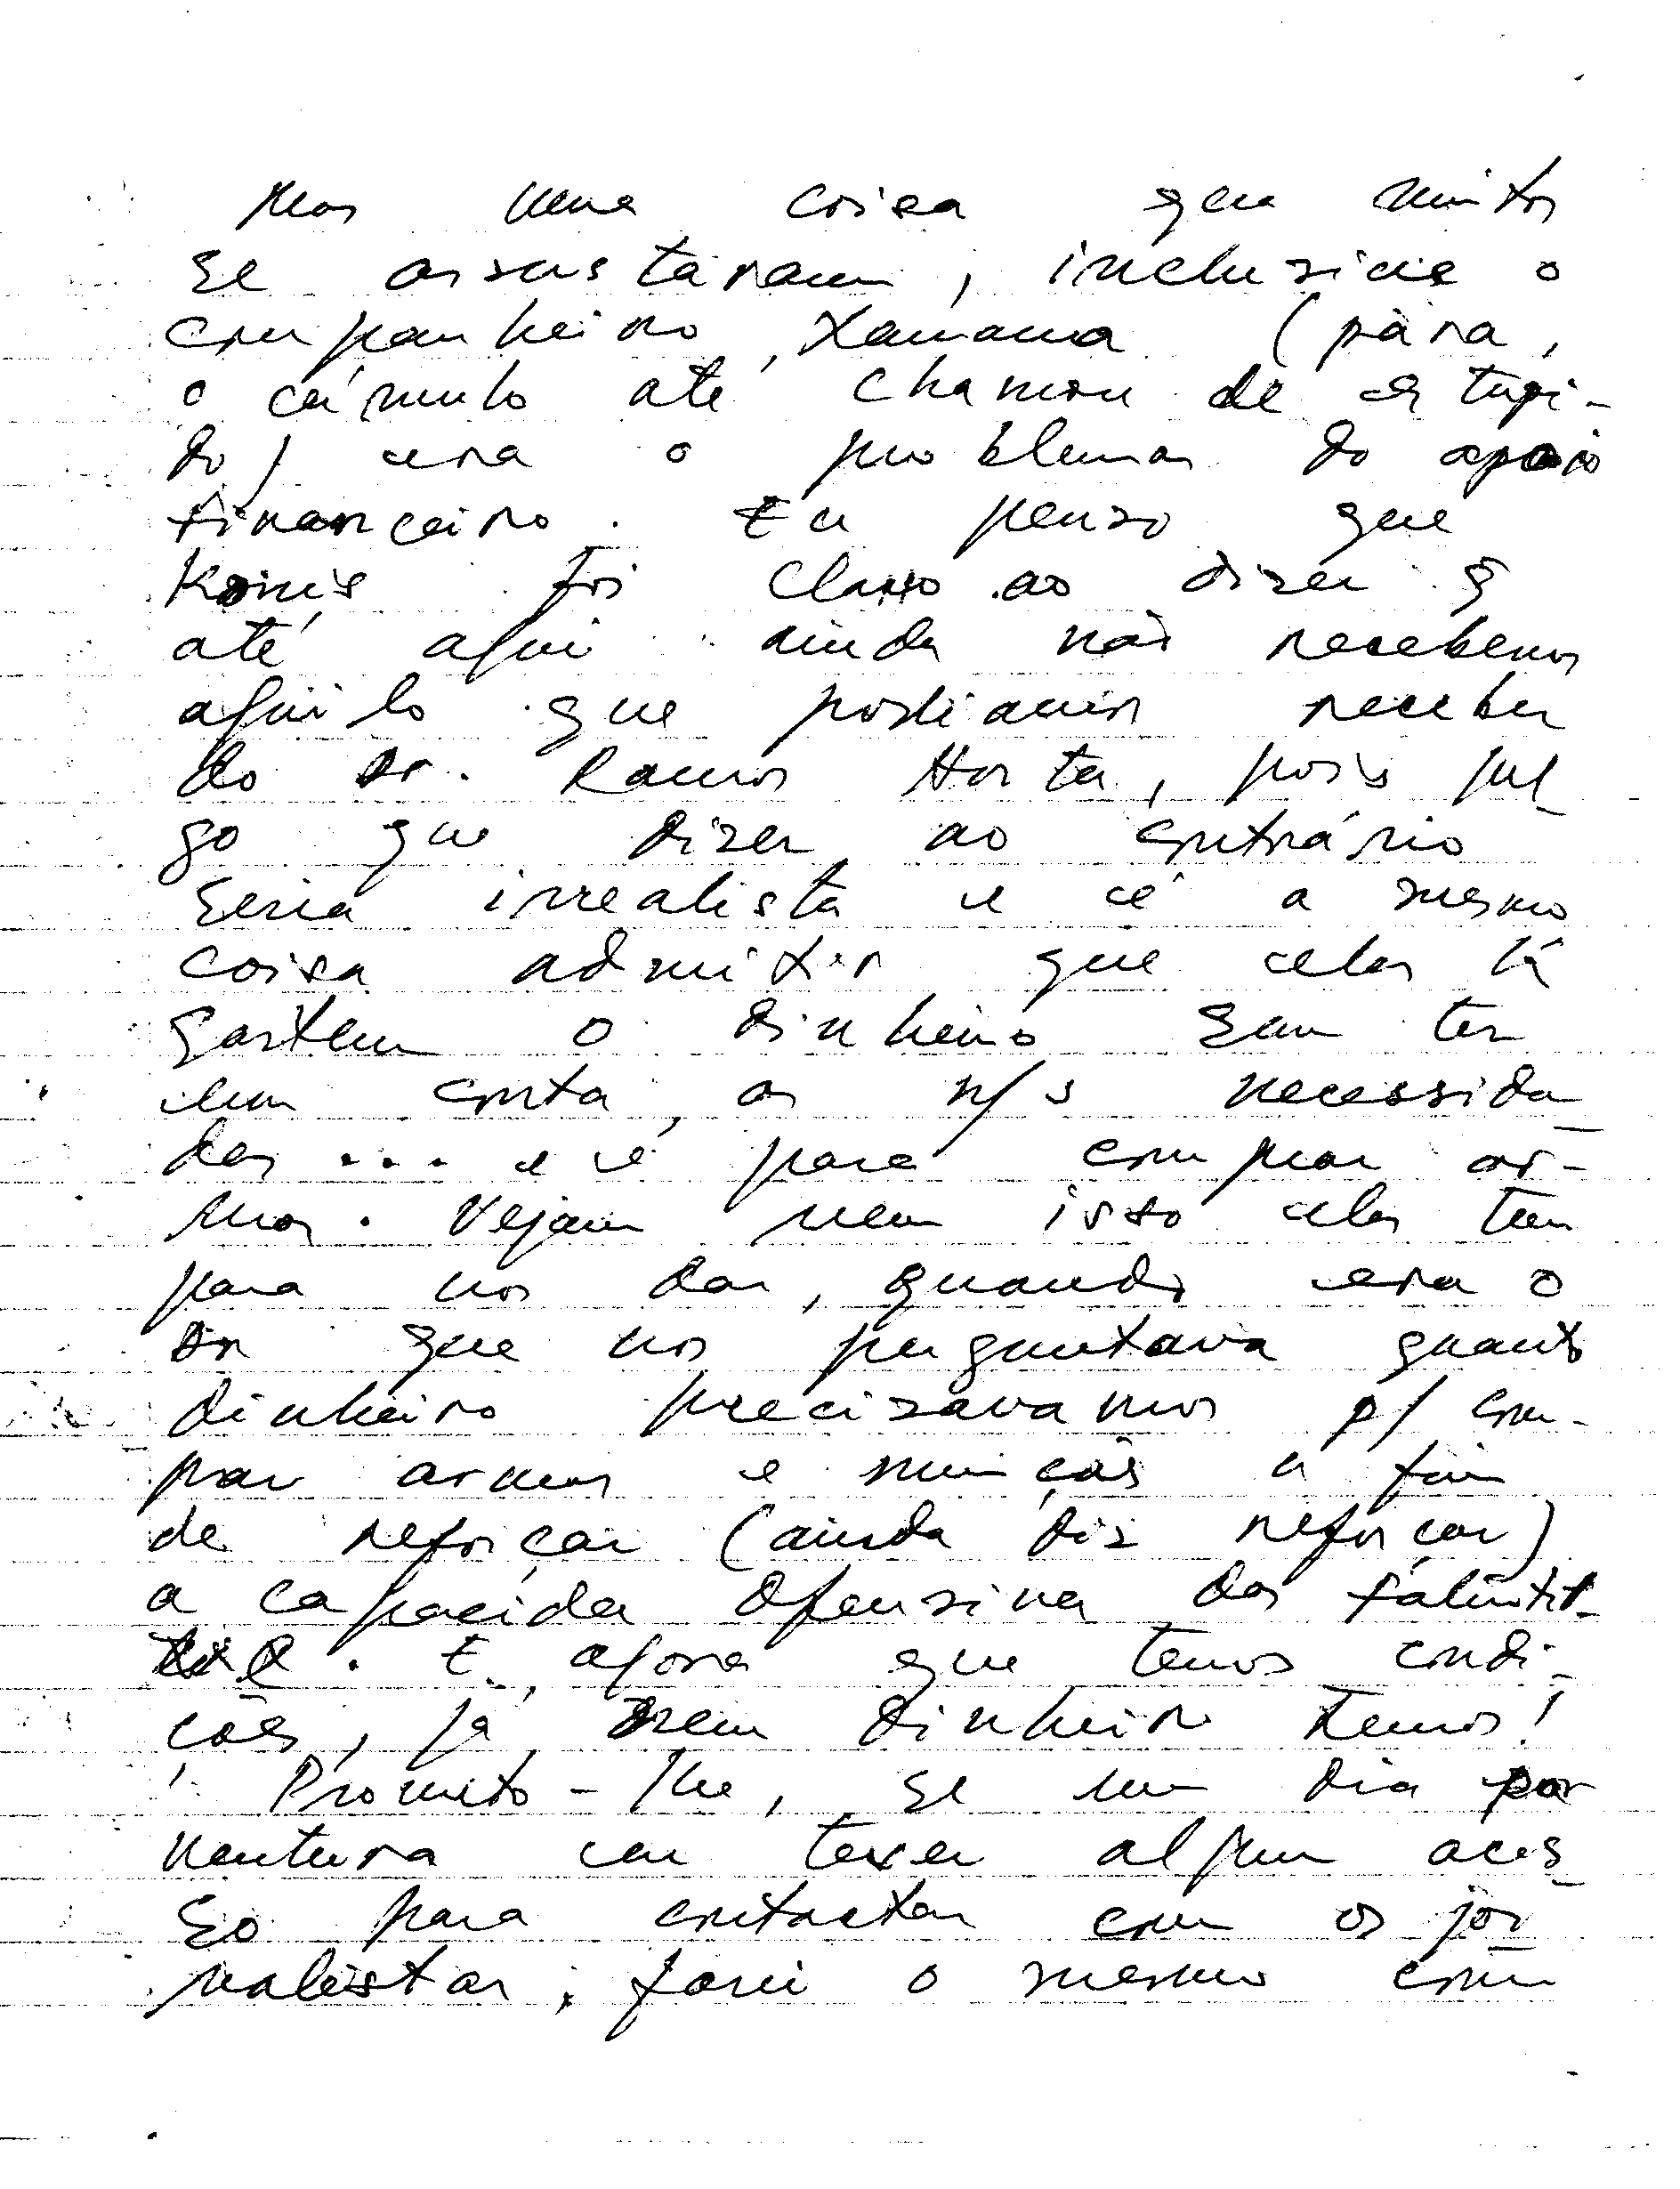 Mas uma coisa que muitos
se assustaram, inclusive o
companheiro Xanana (pára,
o cúmulo até chamou de estupi-
do) era o problemas do apoio
financeiro. Eu penso que
Konis foi claro ao dizer q
até aqui ainda não recebemos
aquilo que podiamos receber
do Dr. Ramos Horta, pois jul_
go que dizer ao contrário
seria irrealista e é a mesmo
coisa admitir que eles lá
gastem o dinheiro sem ter
em conta, as n/s necessida_
des ... e é para comprar ar-
mas. Vejam nem isso eles tem
para nos dar, quando era o
Dr que nos perguntava quanto
dinheiro precisavamos p/ com-
prar armas e munições a fim
de reforçar (ainda diz reforçar)
a capacida ofensiva das Falintil.
E, agora que temos condi_
ções, já nem dinheiro temos!
Prometo-lhe, se um dia por
ventura eu tever algum aces_
so para contactar com os jor_
nalistas, farei o mesmo com